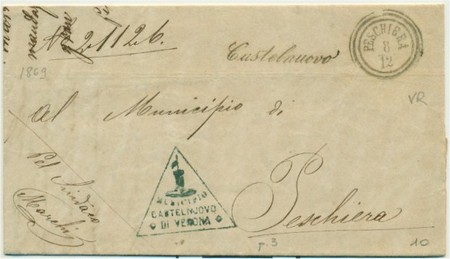 No 21126.
Castelnuovo
PESCHIERA
8
12
1869
VR
Al Municipio di
Peschiera
MUNICIPIO
CASTELNUOVO
DI VERONA
Pel Sindaco
p. 3
10